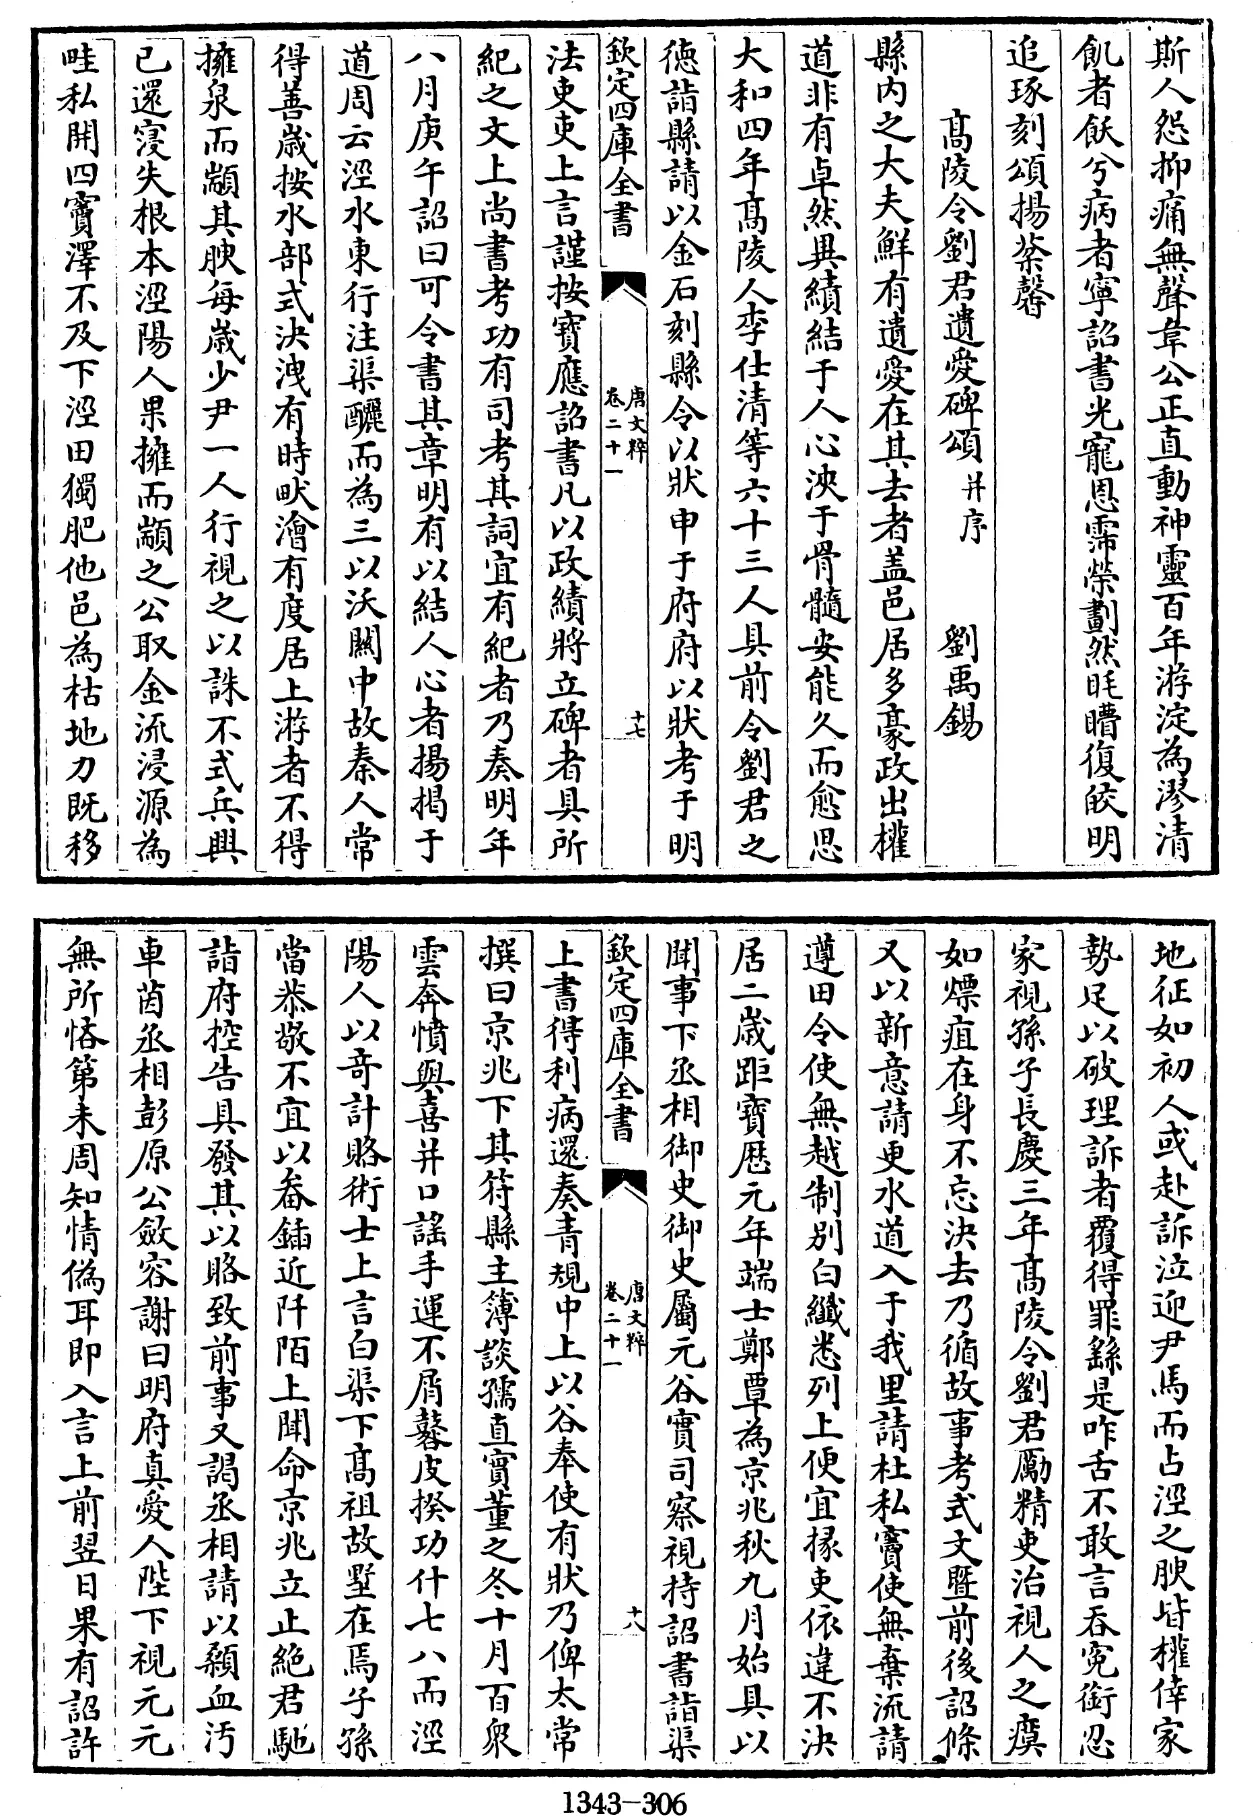 斯人怨抑痛無聲韋公正直動神靈百年㳺淀為漻清
飢者飫兮病者寧詔書光寵恩霈榮劃然眊矒復皎明
追琢刻頌揚芬馨
高陵令劉君遺愛碑頌并序 劉禹錫
縣內之大夫鮮有遺愛在其去者盖邑居多豪政出權
道非有卓然異績結于人心浹于骨髓安能久而愈思
大和四年高陵人李仕清等六十三人具前令劉君之
德詣縣請以金石刻縣令以狀申于府府以狀考于明
欽定四庫全書 唐文粹 卷二十一 十七
法吏吏上言謹按寳應詔書凡以政績將立碑者具所
紀之文上尚書考功有司考其詞宜有紀者乃奏明年
八月庚午詔曰可令書其章明有以結人心者揚揭于
道周云涇水東行注渠釃而為三以沃關中故秦人常
得善歲按水部式決洩有時畎澮有度居上游者不得
擁泉而顓其腴每歲少尹一人行視之以誅不式兵興
已還寖失根本涇陽人果擁而顓之公取金流浸源為
畦私開四竇澤不及下涇田獨肥他邑為枯地力既移
地征如初人或赴訴泣迎尹馬而占涇之腴皆權倖家
勢足以破理訴者覆得罪繇是咋舌不敢言吞寃銜忍
家視孫子長慶三年高陵令劉君勵精吏治視人之瘼
如爍疽在身不忘決去乃循故事考式文暨前後詔條
又以新意請更水道入于我里請杜私竇使無棄流請
遵田令使無越制別白纖悉列上便宜掾吏依違不決
居二歲距寶厯元年端士鄭覃為京兆秋九月始具以
聞事下丞相御史御史屬元谷實司察視持詔書詣渠
欽定四庫全書 唐文粹 卷二十一 十八
上書得利病還奏青規中上以谷奉使有狀乃俾太常
撰曰京兆下其符縣主簿談孺直實董之冬十月百衆
雲奔憤與喜并口謠手運不屑鼛皮揆功什七八而涇
陽人以奇計賂術士上言白渠下高祖故墅在焉子孫
當恭敬不宜以畚鍤近阡陌上聞命京兆立止絶君馳
詣府控告具發其以賂致前事又謁丞相請以顙血汚
車茵丞相彭原公斂容謝曰明府真愛人陛下視元元
無所悋第未周知情偽耳即入言上前翌日果有詔許
1343-306